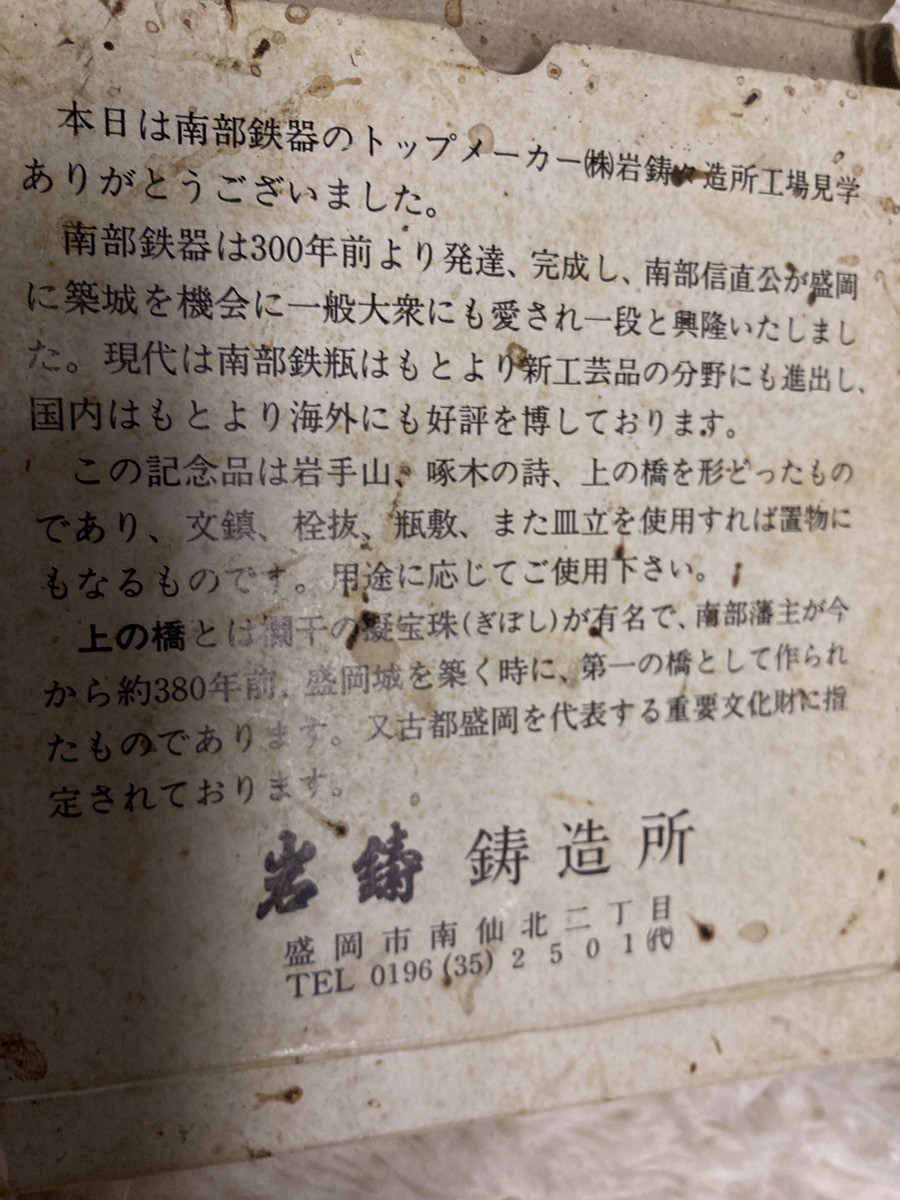 本日は南部鉄器のトップメーカー㈱岩鋳々造所工場見学
ありがとうございました。
南部鉄器は300年前より発達、完成し、南部信直公が盛岡
に築城を機会に一般大衆にも愛され一段と興隆いたしまし
た。現代は南部鉄瓶はもとより新工芸品の分野にも進出し、
国内はもとより海外にも好評を博しております。
この記念品は岩手山、啄木の詩、上の橋を形どったもの
であり、文鎮、栓抜、瓶敷、また皿立を使用すれば置物に
もなるものです。用途に応じてご使用下さい。
上の橋とは欄干の擬宝珠(ぎぼし)が有名で、南部藩主が今
から約380年前、盛岡城を築く時に、第一の橋として作られ
たものであります。又古都盛岡を代表する重要文化財に指
定されております。
岩鋳 鋳造所
盛岡市南仙北二丁目
TEL 0196(35)2501㈹